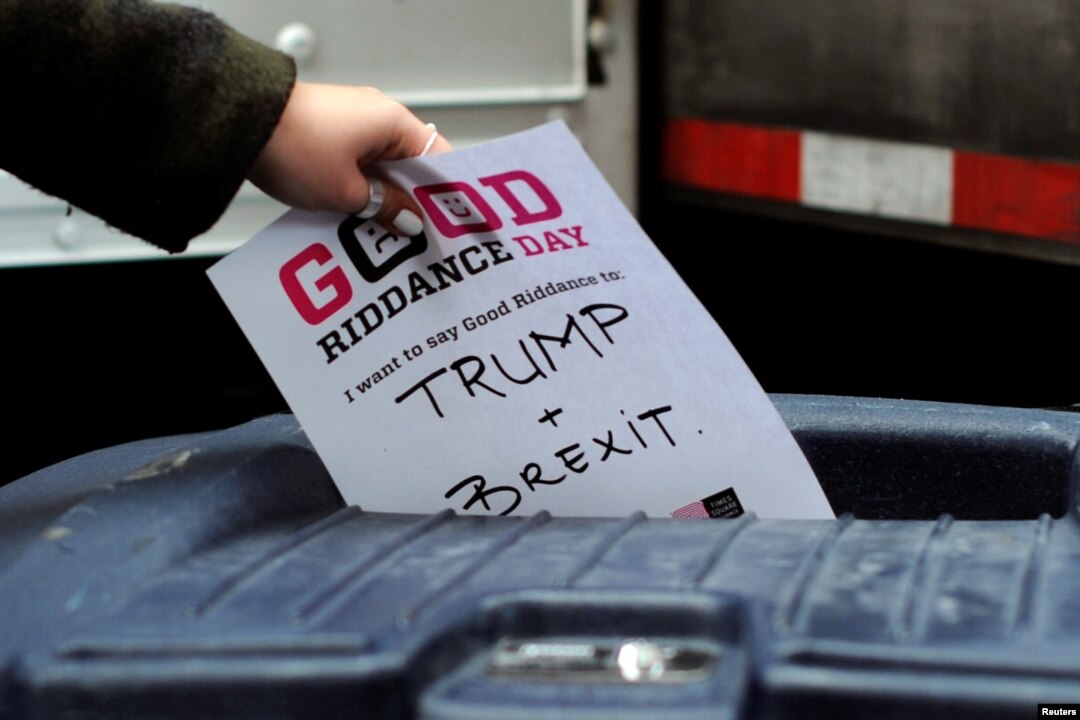 GOOD
RIDDANCE DAY
I want to say Good Riddance to:
TRUMP
+
BREXIT.
TIMES
SQUARE
Reuters